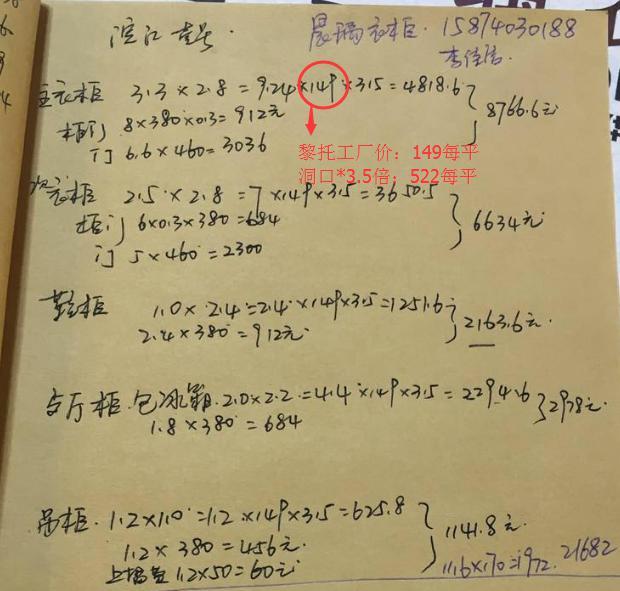 滨江
晨瑞衣柜. 15874030188
主衣柜 3.3×2.8=9.24×149×3.5=4818.6
柜门 8×380×0.3=912元
门 6.6×460=3036
8766.6元
黎托工厂价：149每平
洞口*3.5倍；522每平
次衣柜 2.5×2.8=7×149×3.5=3650.5
柜门 6×0.3×380=684
门 5×460=2300
6634元
鞋柜 1.0×2.4=2.4×149×3.5=1251.6
2.4×380=912元
2163.6元
包冰箱.2.0×2.2=4.4×149×3.5=2294.6
1.8×380=684
2978元
吊柜.1.2×1.0=1.2×149×3.5=625.8
1.2×380=456元
1.2×50=60元
1141.8元
11.6×170=1972. 21682